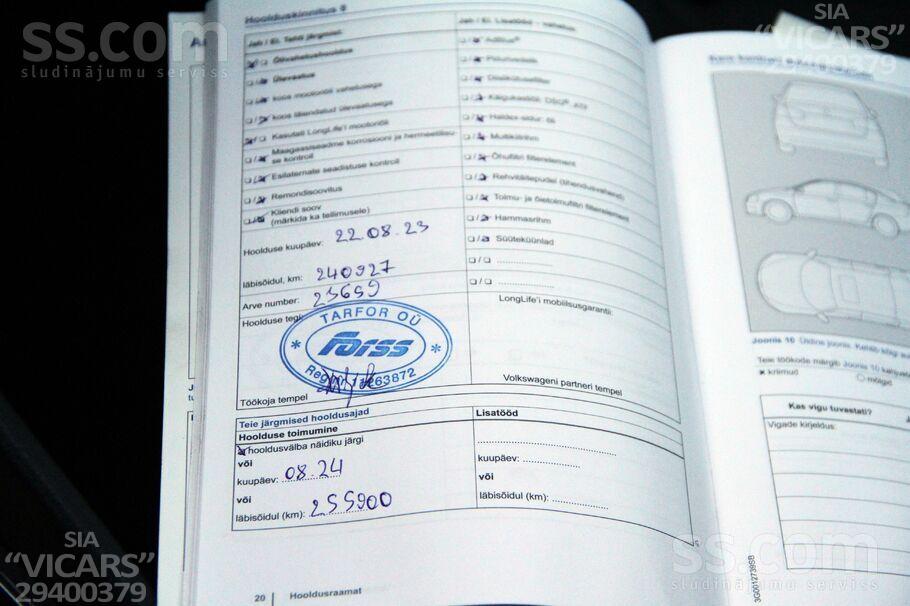 ss.com
sludinājumu serviss
SIA
"VICARS"
29400379
Hoolduskinnitus 9
Jah / Ei, Tehti järgmist:
Õlivahetushooldus
Ülevaatus
koos mootoriõli vahetusega
koos täiendatud ülevaatusega
Kasutati LongLife'i mootoriõli
Maagaasiseadme korrosiooni ja hermeetilisu-
se kontroll
Esilaternate seadistuse kontroll
Remondisoovitus
Kliendi soov
(märkida ka tellimusele)
Hoolduse kuupäev: 22.08.23
läbisõidul, km: 240927
Arve number: 23659
Hoolduse
TARFOR OÜ
Forss
Töökoja tempel
Jah / Ei, Lisatööd - vahetus
AdBlue
Haldex-sidur: õli
Multikiilrihm
Õhufiltri filterelement
Rehvitäitepudel (tihendusvahend)
Toimu- ja õietolmufiltri filterelement
Hammasrihm
Süüteküünlad
LongLife'i mobiilsusgarantii:
Volkswageni partneri tempel
Teie järgmised hooldusajad
Hoolduse toimumine
Lisatööd
hooldusvälba näidiku järgi
või
kuupäev: 08.24
või
läbisõidul (km): 255900
kuupäev:
või
läbisõidul (km):
20
Hooldusraamat
Joonis 10
Teie töökode märgib: Joonis 10
kriimud
mõlgid
Kas vigu tuvastati?
Vigade kirjeldus:
3G0012739SB
SIA
"VICARS"
29400379
ss.com
sludinājumu serviss